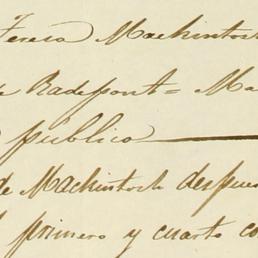 Teresa Mackintosh
de Radepont = Ma
publico
de Mackintosh despues
primero y cuarto co